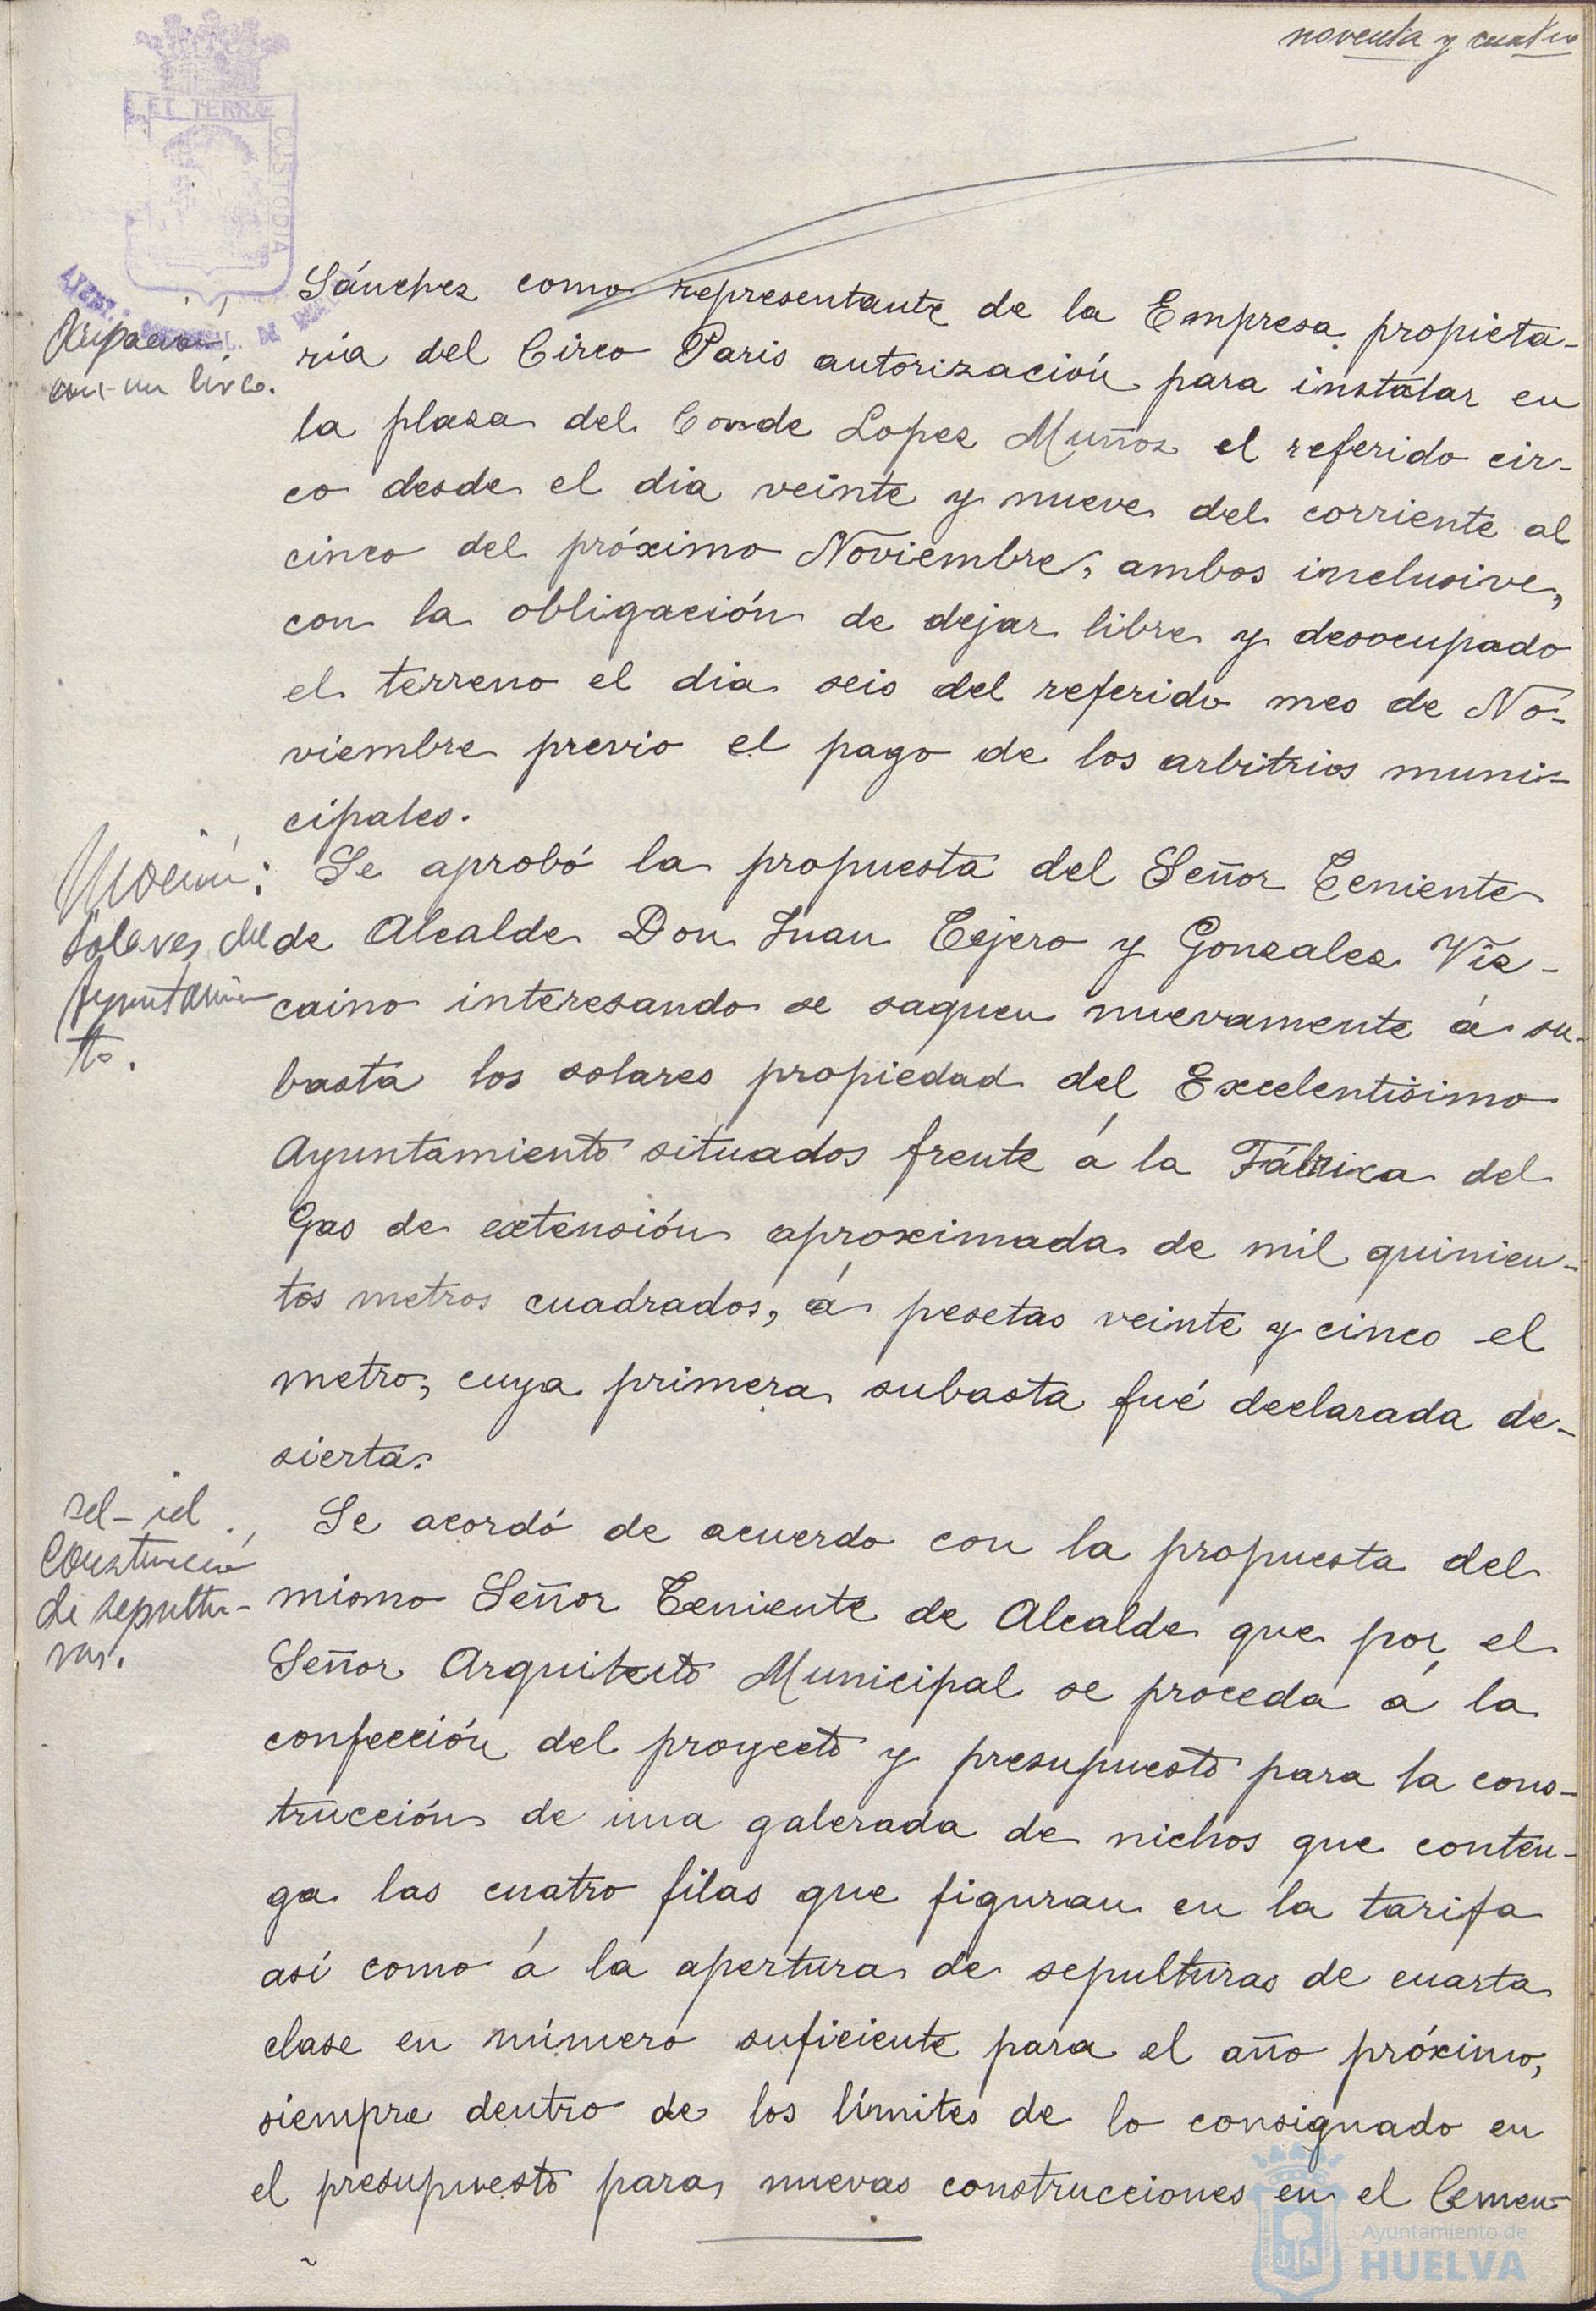 noventa y cuatro
ET TERRÆ
CUSTODIA
Sánchez como representante de la Empresa propieta-
ria del Circo Paris autorización para instalar en
la plaza del Conde Lopez Muñoz el referido cir-
co desde el dia veinte y nueve del corriente al
cinco del próximo Noviembre, ambos inclusive,
con la obligación de dejar libre y desocupado
el terreno el dia seis del referido mes de No-
viembre previo el pago de los arbitrios muni-
cipales.
con un circo.
Moción:
Solares del
Ayuntamien
to.
Se aprobó la propuesta del Señor Teniente
de Alcalde Don Juan Tejero y Gonzalez Viz-
caino interesando se saquen nuevamente á su-
basta los solares propiedad del Excelentisimo
Ayuntamiento situados frente á la Fábrica del
Gas de extensión aproximada de mil quinien-
tos metros cuadrados, á pesetas veinte y cinco el
metro, cuya primera subasta fué declarada de-
sierta.
Construcció
de sepultu-
ras.
Se acordó de acuerdo con la propuesta del
mismo Señor Teniente de Alcalde que por el
Señor Arquitecto Municipal se proceda á la
confección del proyecto y presupuesto para la cons-
trucción de una galerada de nichos que conten-
ga las cuatro filas que figuran en la tarifa
así como á la apertura de sepulturas de cuarta
clase en número suficiente para el año próximo,
siempre dentro de los límites de lo consignado en
el presupuesto para nuevas construcciones en el Cemen-
Ayuntamiento de
HUELVA